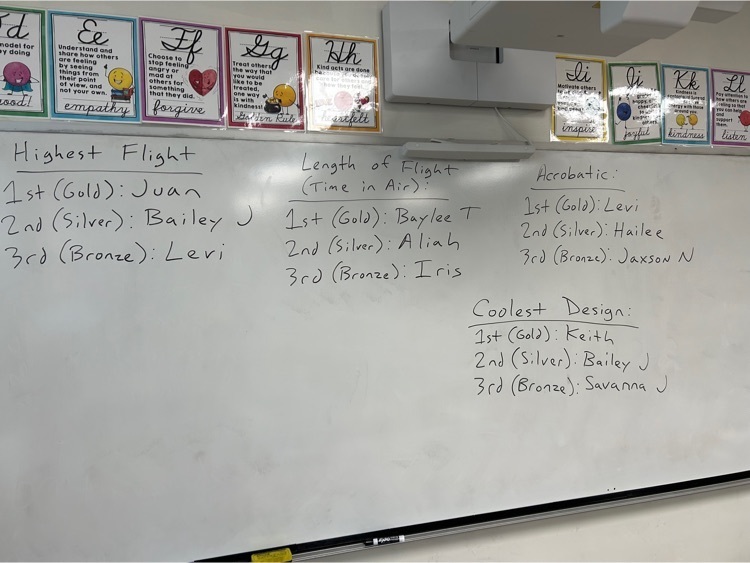 Dd
model for
doing
good!
Ee
Understand and
share how others
are feeling
by seeing
things from
their point
of view, and
not your own.
empathy
Ff
Choose to
stop feeling
angry or
mad at
others for
something
that they did.
forgive
Gg
Treat others
the way that
you would
like to be
treated,
one way
is with
kindness
Golden Rule
Hh
Kind acts are done
heartfelt
Ii
Motivate others
inspire
Jj
joyful
Kk
kindness
Ll
Pay attention to
how others are
feeling so
you can help
and
support
them.
listen
Highest Flight
1st (Gold): Juan
2nd (Silver): Bailey J
3rd (Bronze): Levi
Length of Flight
(Time in Air):
1st (Gold): Baylee T
2nd (Silver): Aliah
3rd (Bronze): Iris
Acrobatic:
1st (Gold): Levi
2nd (Silver): Hailee
3rd (Bronze): Jaxson N
Coolest Design:
1st (Gold): Keith
2nd (Silver): Bailey J
3rd (Bronze): Savanna J
EXPO